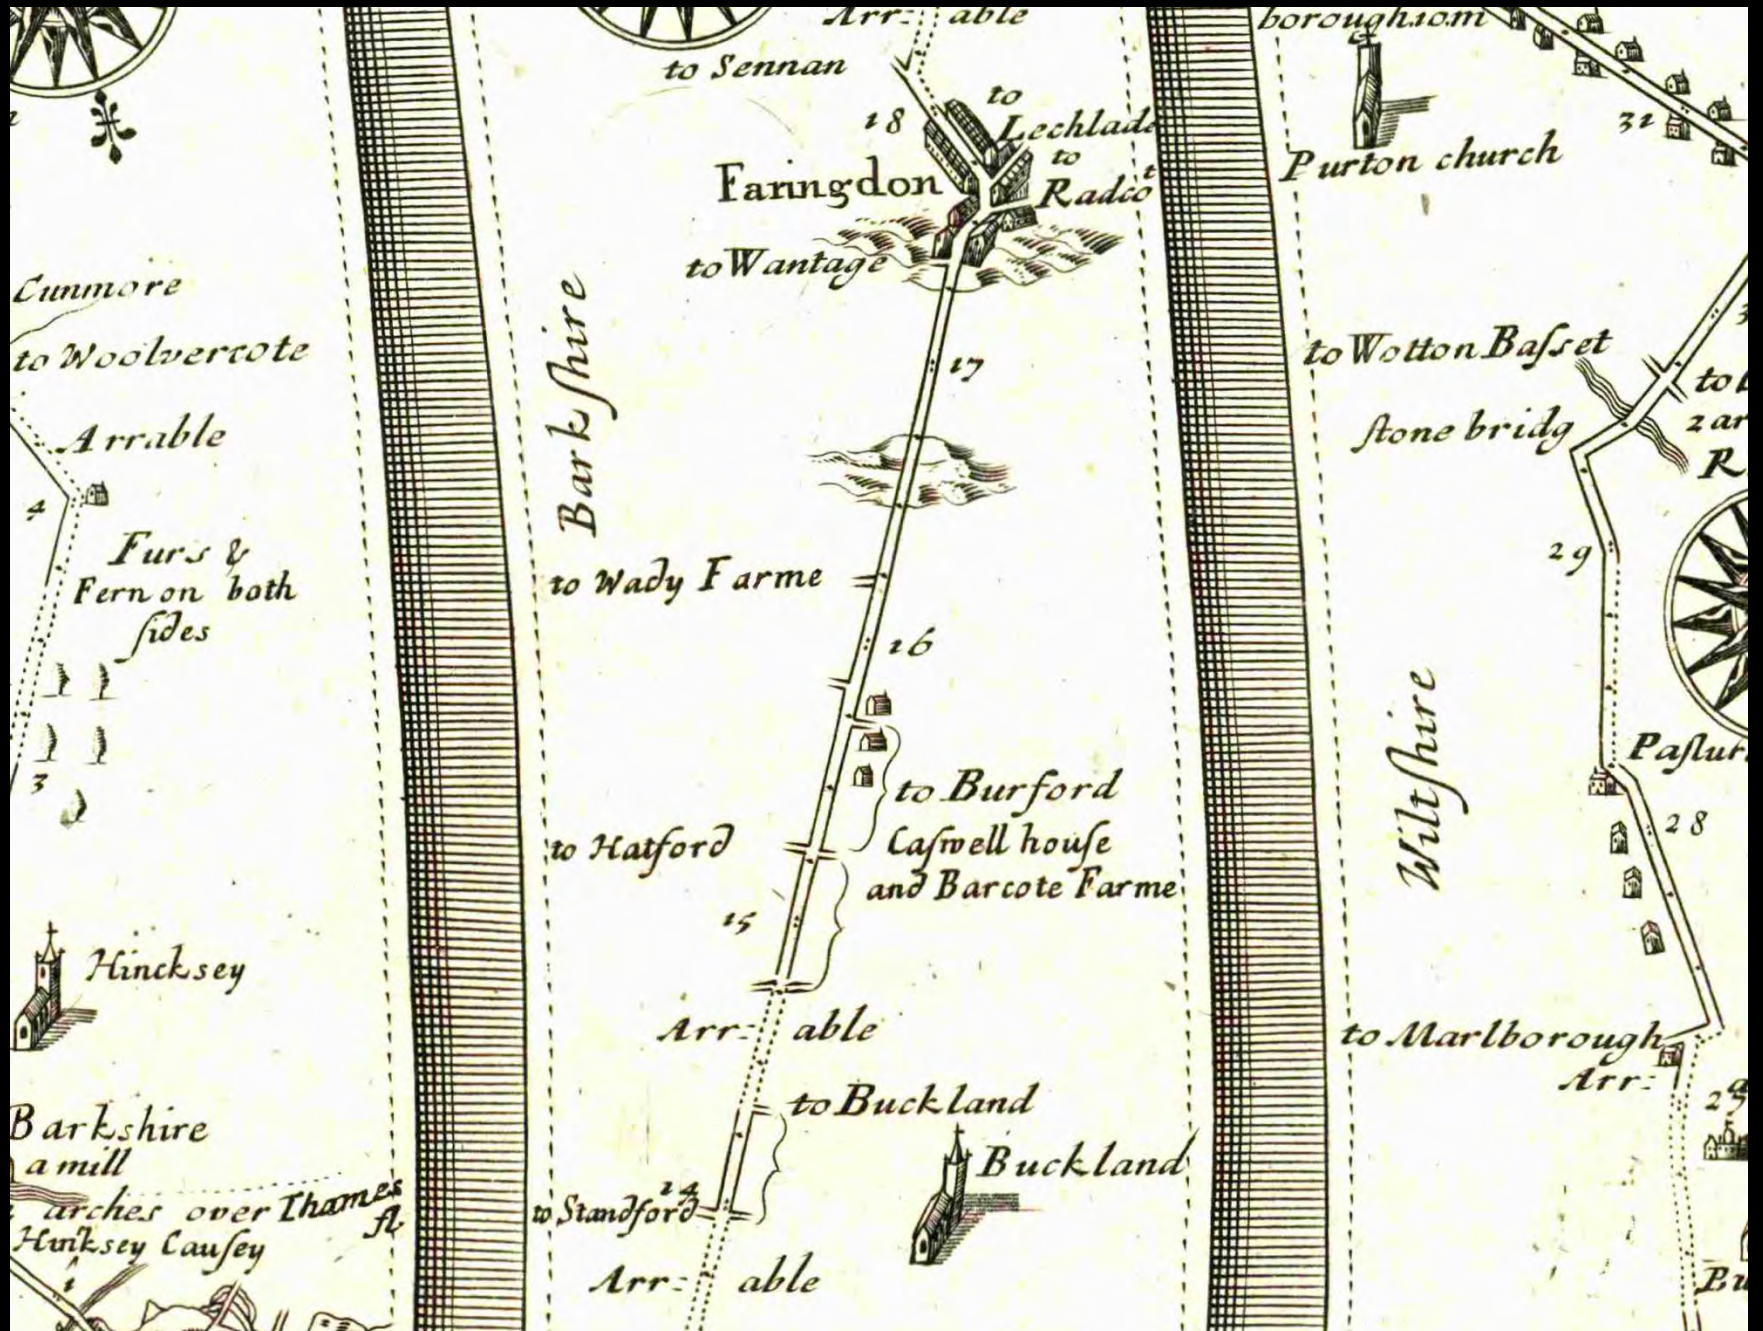 Cunmore
to Woolvercote
Arrable
4
Furs &
Fern on both
ſides
3
Hincksey
Barkshire
a mill
arches over Thames
fl
Hinksey Cauſey
1
Arr: able
to Sennan
18
to
Lechlade
to
Radcot
Faringdon
to Wantage
17
Barkſhire
to Wady Farme
16
to Burford
Caſwell houſe
and Barcote Farme
to Hatford
15
Arr: able
to Buckland
Buckland
14
to Standford
Arr: able
borough 10.m
31
Purton church
to Wotton Baſset
ſtone bridg
29
Wiltſhire
28
to Marlborough
Arr: